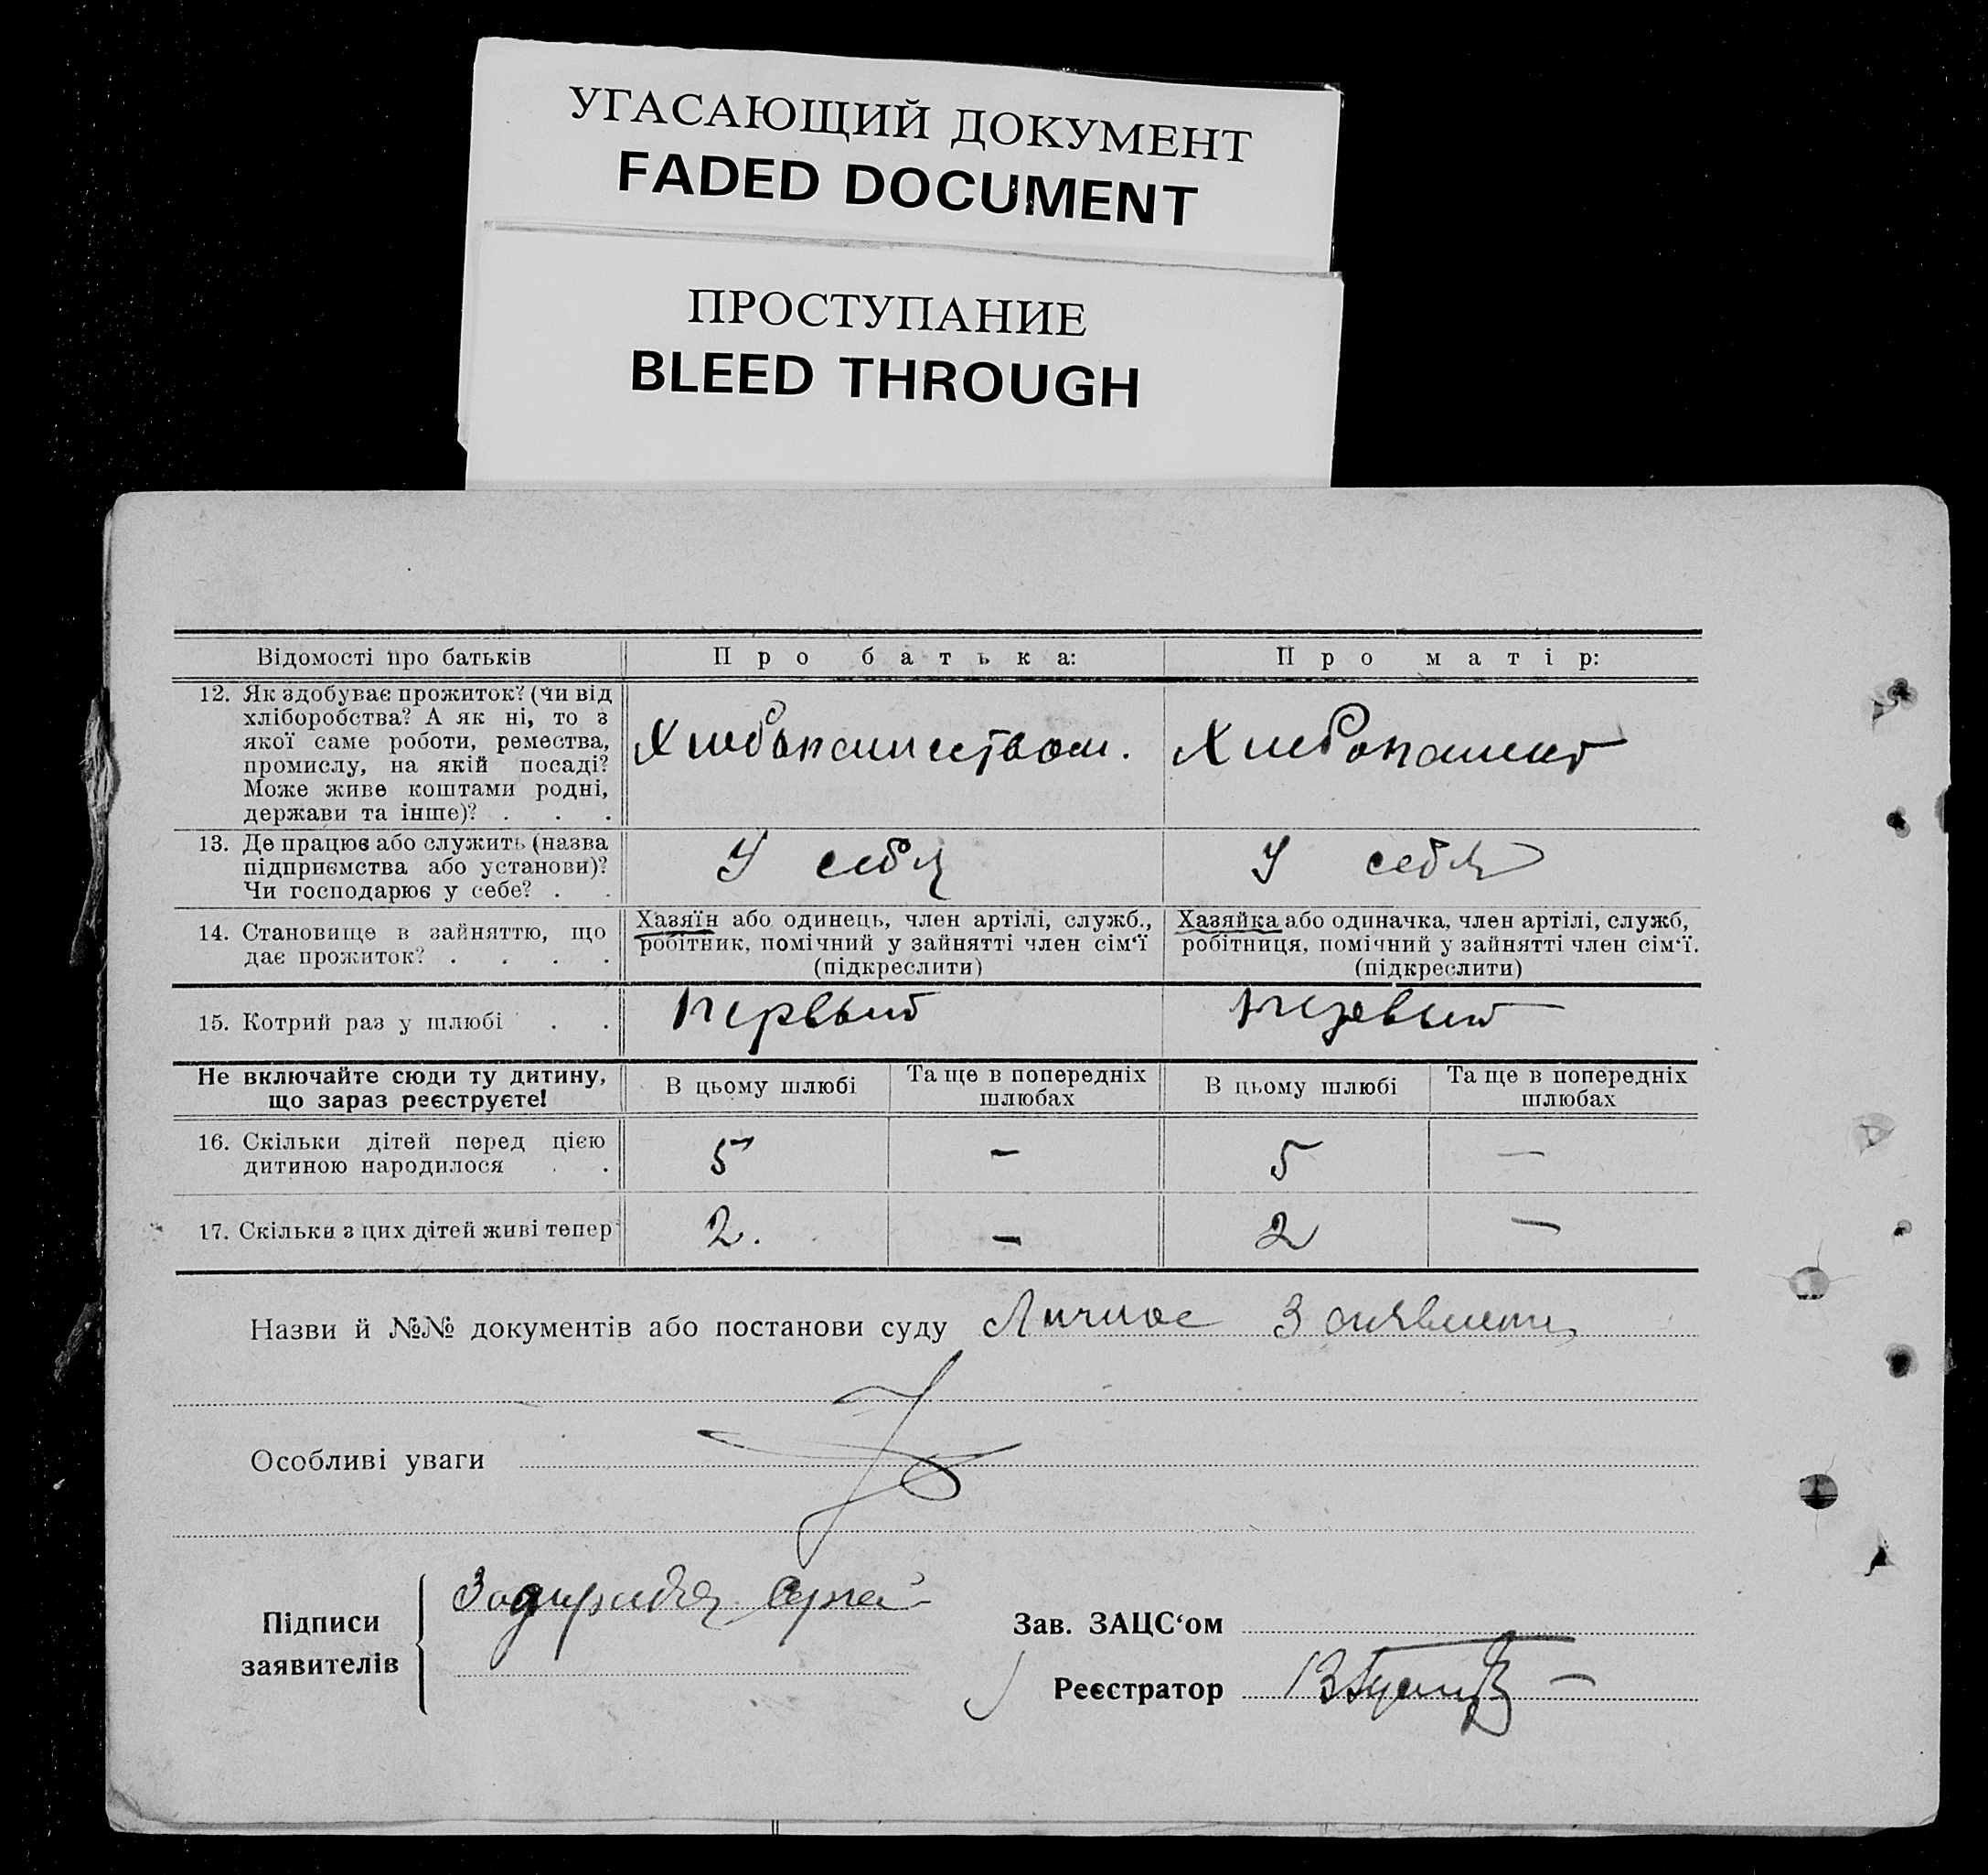 УГАСАЮЩИЙ ДОКУМЕНТ
FADED DOCUMENT
ПРОСТУПАНИЕ
BLEED THROUGH
Відомості про батьків
Про батька:
Про матір:
12. Як здобуває прожиток? (чи від
хліборобства? А як ні, то з
якої саме роботи, ремества,
промислу, на якій посаді?
Може живе коштами родні,
держави та інше)? . . .
Хлебопашеством.
Хлебопашест
13. Де працює або служить (назва
підприємства або установи)?
Чи господарює у себе? . .
У себя
У себя
14. Становище в зайняттю, що
дає прожиток? . . . .
Хазяїн або одинець, член артілі, служб.,
робітник, помічний у зайнятті член сім‘ї
(підкреслити)
Хазяйка або одиначка, член артілі, служб,
робітниця, помічний у зайнятті член сім‘ї.
(підкреслити)
15. Котрий раз у шлюбі . .
первый
первый
Не включайте сюди ту дитину,
що зараз реєструєте!
В цьому шлюбі
Та ще в попередніх
шлюбах
В цьому шлюбі
Та ще в попередніх
шлюбах
16. Скільки дітей перед цією
дитиною народилося . .
5
-
5
—
17. Скільки з цих дітей живі тепер
2.
-
2
—
Назви й №№ документів або постанови суду Личное
Особливі уваги
Підписи
заявителів
Сергей
Зав. ЗАЦС‘ом
Реєстратор